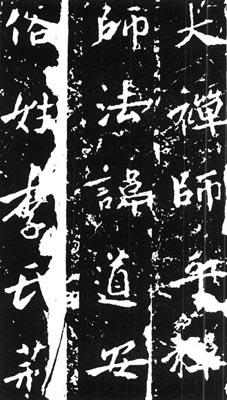 大禪師禪
師法諱道安
俗姓李氏荊